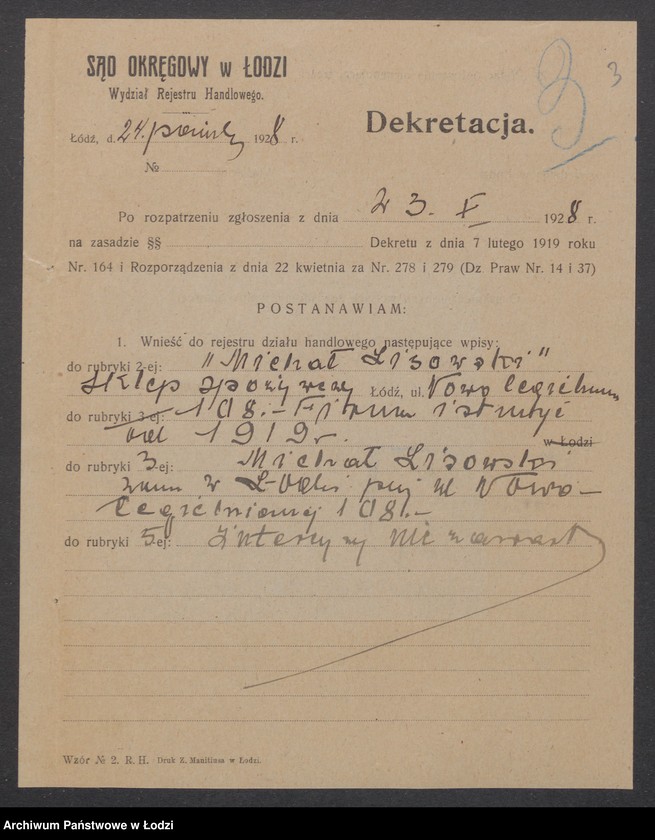 SĄD OKRĘGOWY w ŁODZI
Wydział Rejestru Handlowego.
3 3
Dekretacja.
Łódź, d. 24. paźdz 1928 r.
№
Po rozpatrzeniu zgłoszenia z dnia 23. X 1928 r.
na zasadzie §§ Dekretu z dnia 7 lutego 1919 roku
Nr. 164 i Rozporządzenia z dnia 22 kwietnia za Nr. 278 i 279 (Dz Praw Nr. 14 i 37)
POSTANAWIAM:
1. Wnieść do rejestru działu handlowego następujące wpisy:
do rubryki 2-ej: "Michał Lisowski"
sklep spożywczy Łódź, ul. Nowo Cegielniana
do rubryki 3-ej: 108.- Firma istnieje
od 1919 r. w Łodzi
do rubryki 3-ej: Michał Lisowski
zam w Łodzi przy ul Nowo-
Cegielnianej 108.-
do rubryki 5-ej: Intercyzy nie zawarł
Wzór № 2. R. H. Druk R. Manitiusa w Łodzi.
Archiwum Państwowe w Łodzi